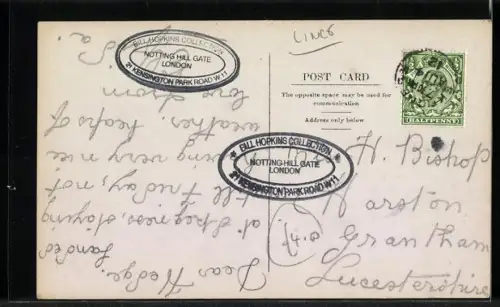 LINCS
BILL HOPKINS COLLECTION
NOTTING HILL GATE
LONDON
21 KENSINGTON PARK ROAD W11
POST CARD
The opposite space may be used for
communication
Address only below
HALFPENNY
H. Bishop
Marston
Grantham
BILL HOPKINS COLLECTION
NOTTING HILL GATE
LONDON
21 KENSINGTON PARK ROAD W11
Dear Hedge.
Landed
at Skegness, staying
till Friday, not
having very nice
weather, heaps of
love from